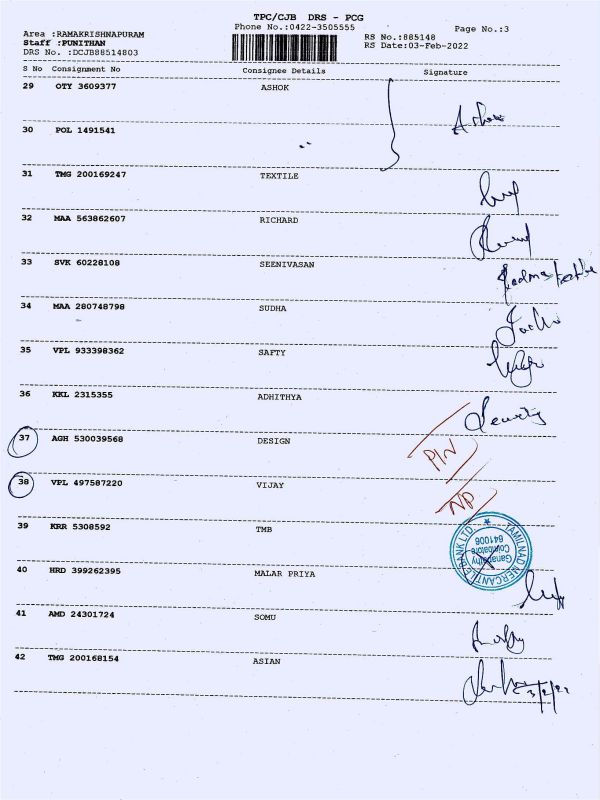 TPC/CJB DRS - PCG
Phone No.:0422-3505555 Page No.:3
Area :RAMAKRISHNAPURAM RS No.:885148
Staff :PUNITHAN RS Date:03-Feb-2022
DRS No. :DCJB88514803
S No Consignment No Consignee Details Signature
29 OTY 3609377 ASHOK
30 POL 1491541
31 TMG 200169247 TEXTILE
32 MAA 563862607 RICHARD
33 SVK 60228108 SEENIVASAN
34 MAA 280748798 SUDHA
35 VPL 933398362 SAFTY
36 KKL 2315355 ADHITHYA
37 AGH 530039568 DESIGN PIN
38 VPL 497587220 VIJAY NP
39 KRR 5308592 TMB
TAMILNAD MERCANTILE BANK LTD.
Ganapathy
Coimbatore
641006
40 HRD 399262395 MALAR PRIYA
41 AMD 24301724 SOMU
42 TMG 200168154 ASIAN